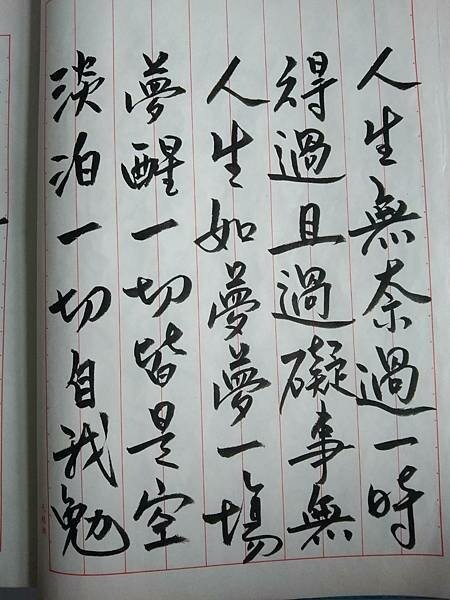 人生無奈過一時
得過且過礙事無
人生如夢夢一場
夢醒一切皆是空
淡泊一切自我勉